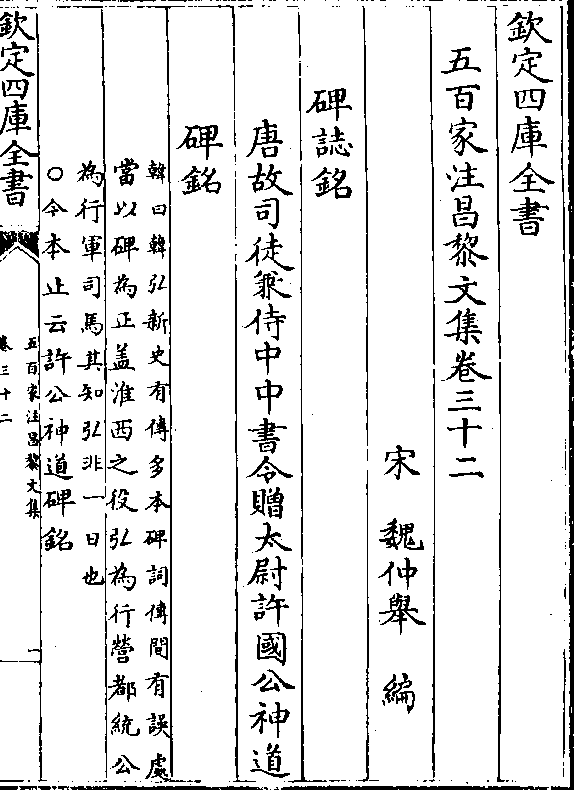 欽定四庫全書
五百家注昌黎文集卷三十二
宋 魏仲舉 編
碑誌銘
唐故司徒兼侍中中書令贈太尉許國公神道
碑銘
韓曰韓弘新史有傳多本碑詞傳間有誤處
當以碑為正盖淮西之役弘為行營都統公
為行軍司馬其知弘非一日也
○今本止云許公神道碑銘
欽定四庫全書
五百家注昌黎文集
卷三十二
一